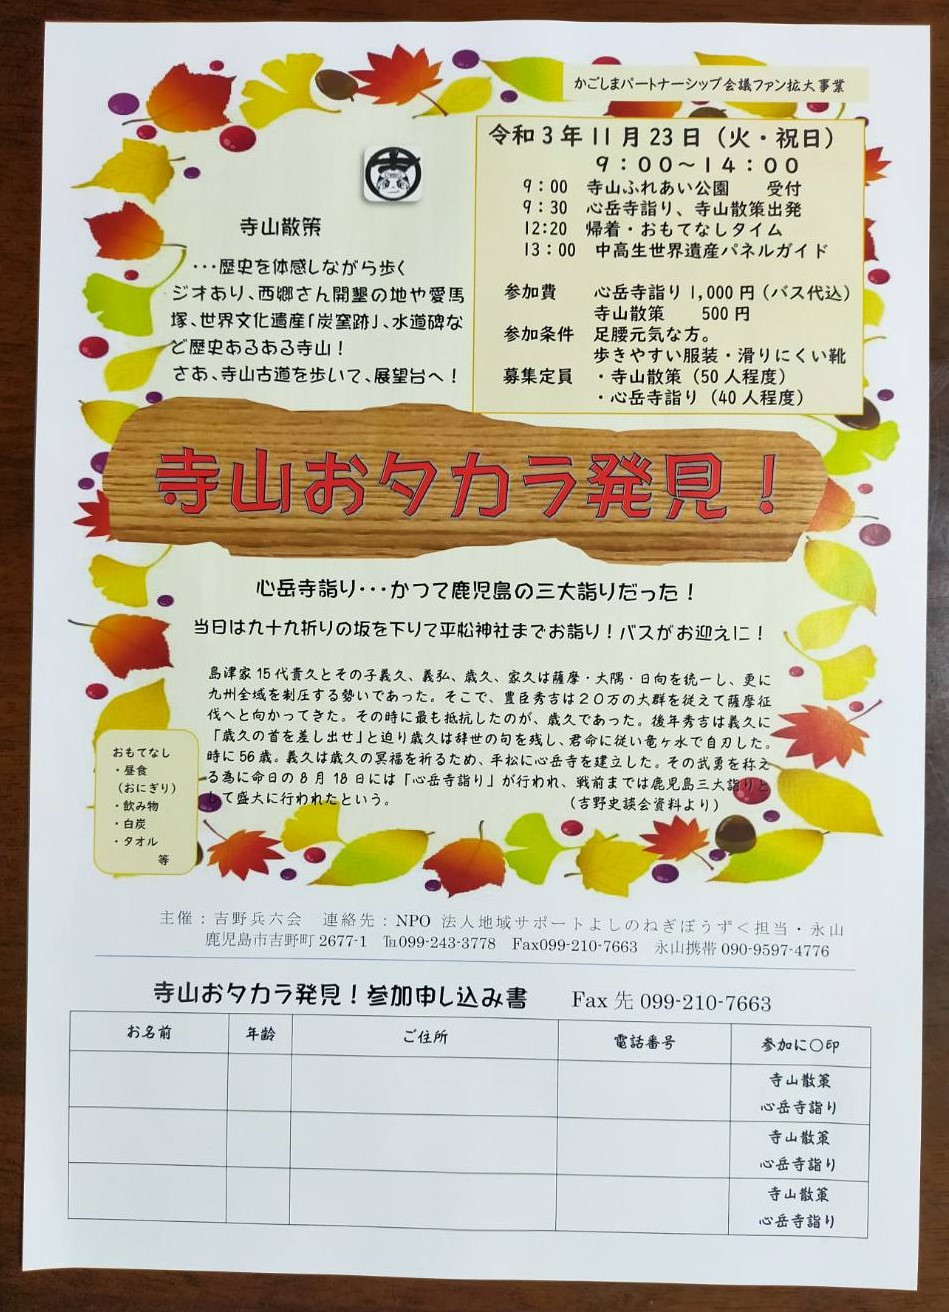 かごしまパートナーシップ会議ファン拡大事業
令和3年11月23日（火・祝日）
9：00～14：00
9：00 寺山ふれあい公園 受付
9：30 心岳寺詣り、寺山散策出発
12:20 帰着・おもてなしタイム
13：00 中高生世界遺産パネルガイド
参加費 心岳寺詣り1,000円（バス代込）
寺山散策 500円
参加条件 足腰元気な方。
歩きやすい服装・滑りにくい靴
募集定員 ・寺山散策（50人程度）
・心岳寺詣り（40人程度）
寺山散策
・・・歴史を体感しながら歩く
ジオあり、西郷さん開墾の地や愛馬
塚、世界文化遺産「炭窯跡」、水道碑な
ど歴史あるある寺山！
さあ、寺山古道を歩いて、展望台へ！
寺山おタカラ発見！
心岳寺詣り・・・かつて鹿児島の三大詣りだった！
当日は九十九折りの坂を下りて平松神社までお詣り！バスがお迎えに！
島津家15代貴久とその子義久、義弘、歳久、家久は薩摩・大隅・日向を統一し、更に
九州全域を制圧する勢いであった。そこで、豊臣秀吉は20万の大群を従えて薩摩征
伐へと向かってきた。その時に最も抵抗したのが、歳久であった。後年秀吉は義久に
「歳久の首を差し出せ」と迫り歳久は辞世の句を残し、君命に従い竜ヶ水で自刃した。
時に56歳。義久は歳久の冥福を祈るため、平松に心岳寺を建立した。その武勇を称え
る為に命日の8月18日には「心岳寺詣り」が行われ、戦前までは鹿児島三大詣りと
して盛大に行われたという。 （吉野史談会資料より）
おもてなし
・昼食
（おにぎり）
・飲み物
・白炭
・タオル
等
主催：吉野兵六会 連絡先：NPO 法人地域サポートよしのねぎぼうず＜担当・永山
鹿児島市吉野町2677-1 ℡099-243-3778 Fax099-210-7663 永山携帯090-9597-4776
寺山おタカラ発見！参加申し込み書 Fax先099-210-7663
お名前 年齢 ご住所 電話番号 参加に○印
寺山散策
心岳寺詣り
寺山散策
心岳寺詣り
寺山散策
心岳寺詣り